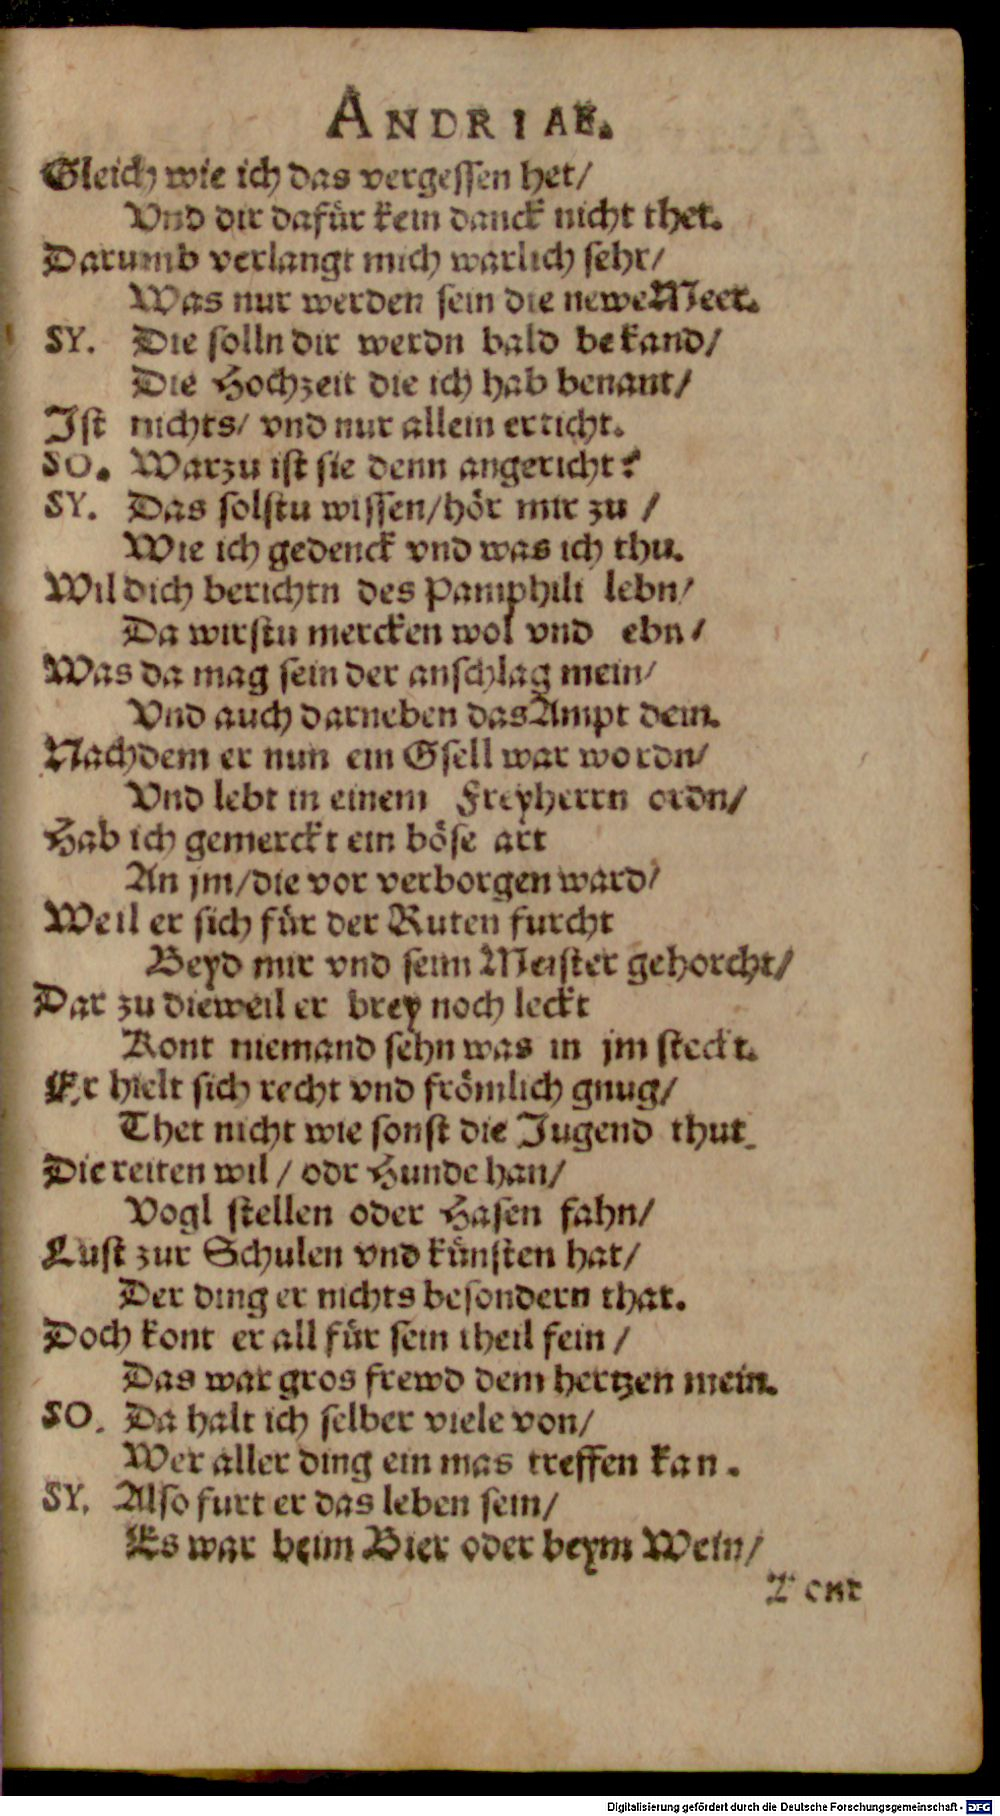 ANDRIAE.
Gleich wie ich das vergessen het/
Vnd dir dafür kein danck nicht thet.
Darumb verlangt mich warlich sehr/
Was nur werden sein die newe Meer.
SY. Die solln dir werdn bald bekand/
Die Hochzeit die ich hab benant/
Ist nichts/ vnd nur allein erticht.
SO. Warzu ist sie denn angericht?
SY. Das solstu wissen/hör mir zu /
Wie ich gedenck vnd was ich thu.
Wil dich berichtn des Pamphili lebn/
Da wirstu mercken wol vnd ebn/
Was da mag sein der anschlag mein/
Vnd auch darneben das Ampt dein.
Nachdem er nun ein Gsell war wordn/
Vnd lebt in einem Freyherrn ordn/
Hab ich gemerckt ein böse art
An jm/die vor verborgen ward/
Weil er sich für der Ruten furcht
Beyd mir vnd seim Meister gehorcht/
Dar zu dieweil er brey noch leckt
Kont niemand sehn was in jm steckt.
Er hielt sich recht vnd frömlich gnug/
Thet nicht wie sonst die Jugend thut
Die reiten wil/ odr Hunde han/
Vogl stellen oder Hasen fahn/
Lust zur Schulen vnd künsten hat/
Der ding er nichts besondern that.
Doch kont er all für sein theil fein /
Das war gros frewd dem hertzen mein.
SO. Da halt ich selber viele von/
Wer aller ding ein mas treffen kan.
SY. Also furt er das leben sein/
Es war beim Bier oder beym Wein/
Kont
Digitalisierung gefördert durch die Deutsche Forschungsgemeinschaft - DFG